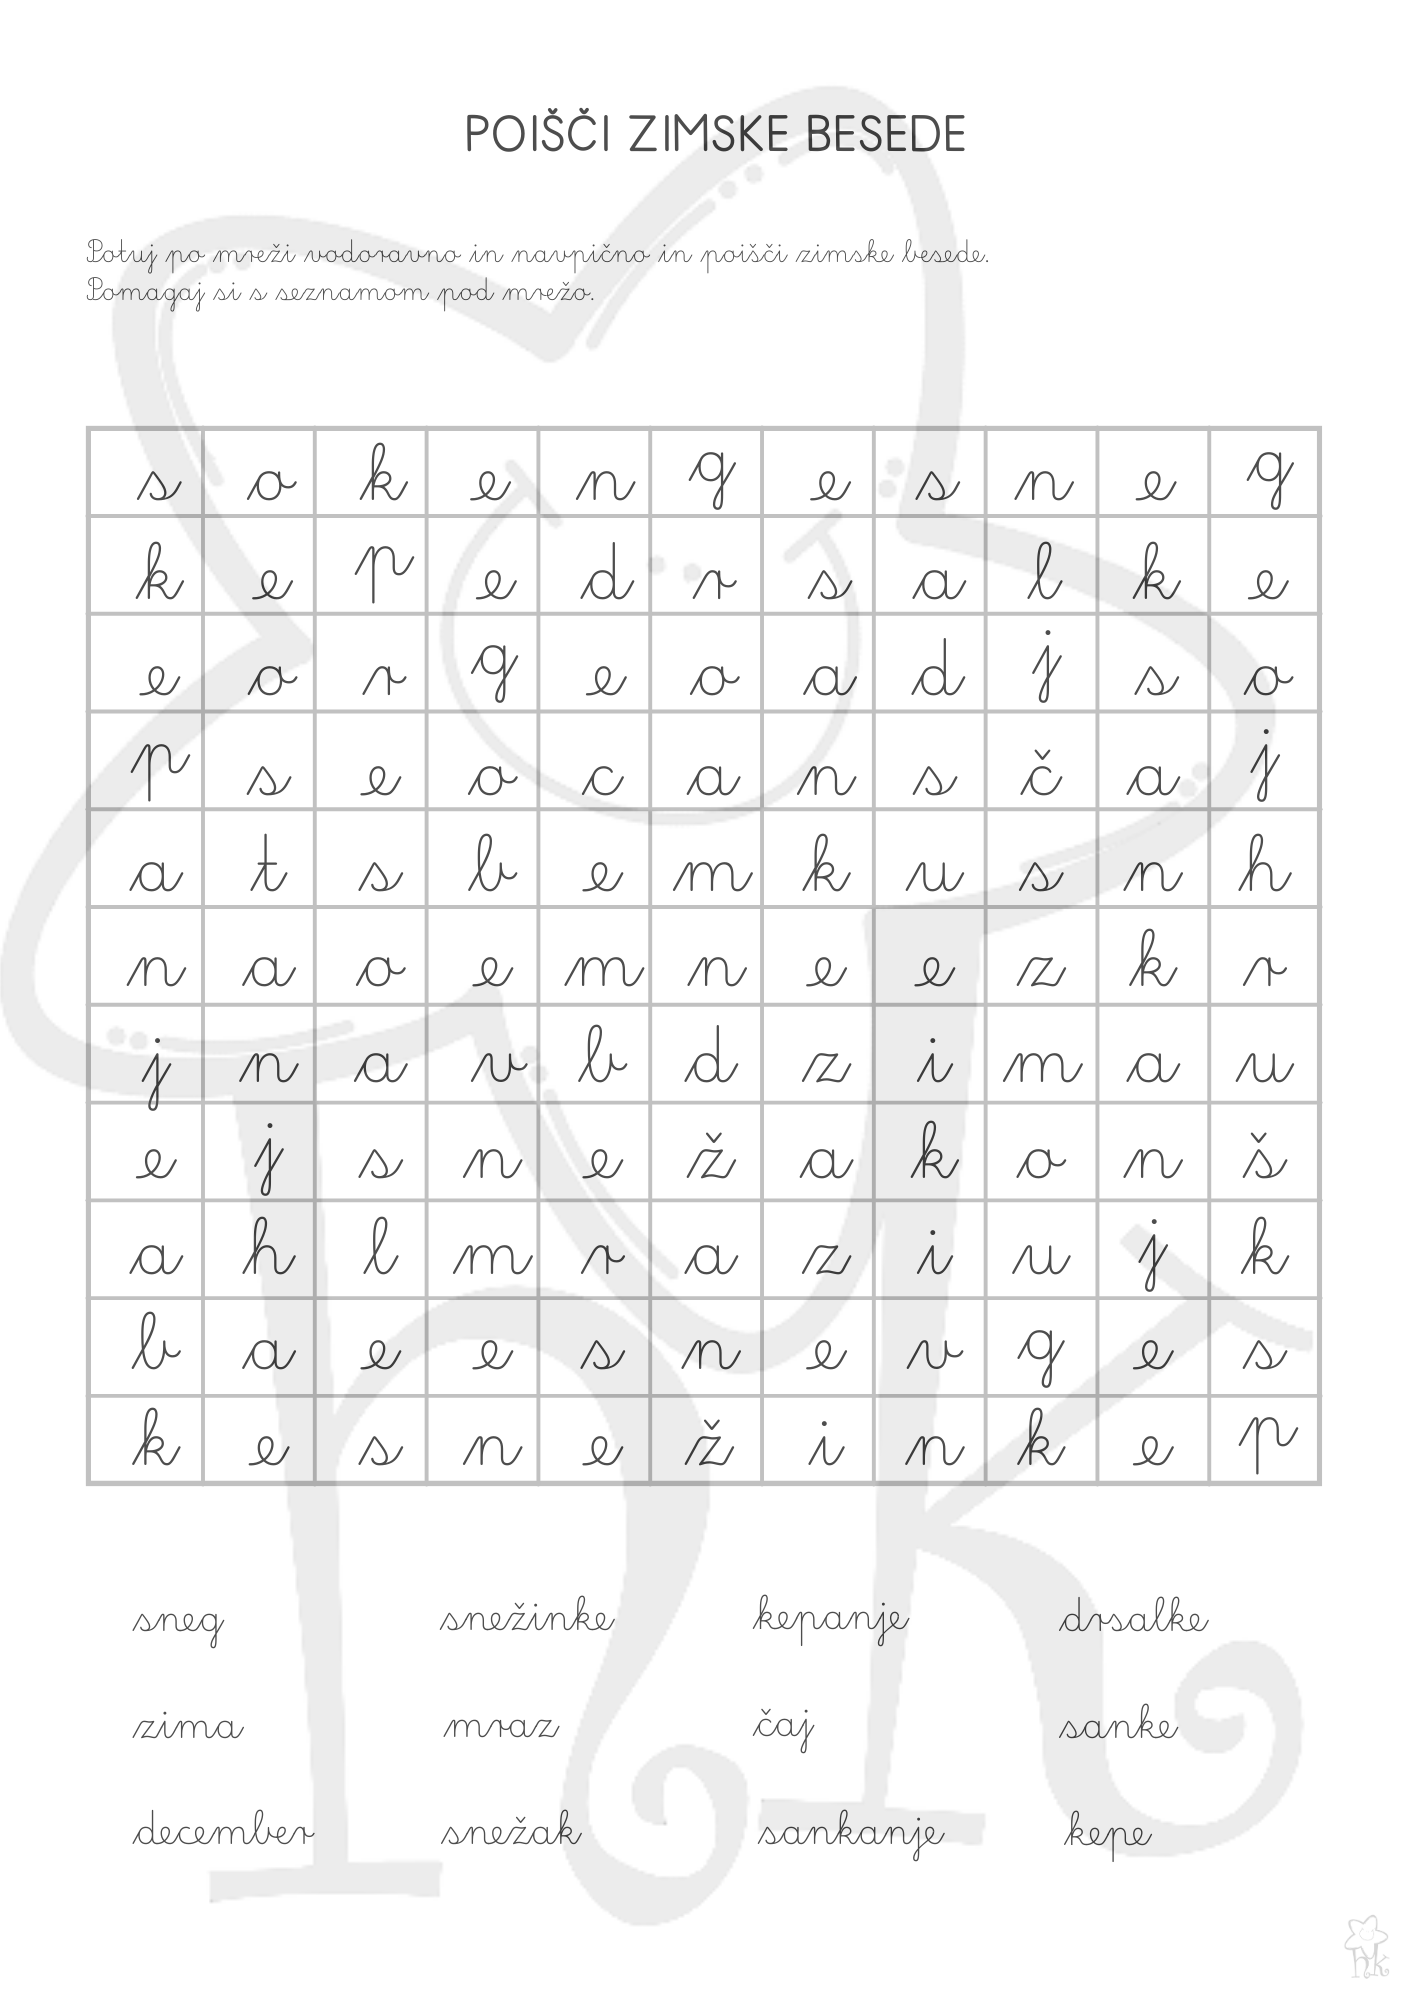 POIŠČI ZIMSKE BESEDE
Potuj po mreži vodoravno in navpično in poišči zimske besede.
Pomagaj si s seznamom pod mrežo.
s o k e n g e s n e g
k e p e d r s a l k e
e o r g e o a d j s o
p s e o c a n s č a j
a t s b e m k u s n h
n a o e m n e e z k r
j n a v b d z i m a u
e j s n e ž a k o n š
a h l m r a z i u j k
b a e e s n e v g e s
k e s n e ž i n k e p
sneg snežinke kepanje drsalke
zima mraz čaj sanke
december snežak sankanje kepe
hk